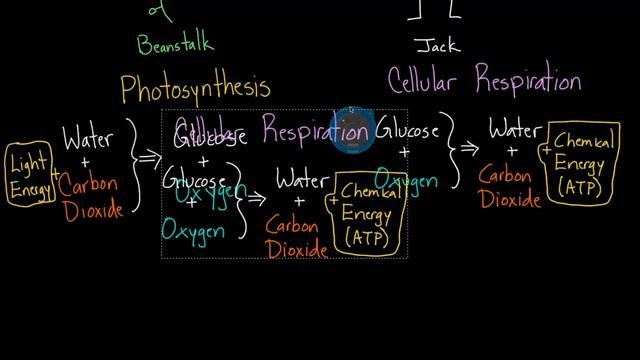 Beanstalk
Jack
Photosynthesis
Cellular Respiration
Light
Energy
+
Water
+
Carbon
Dioxide
⇒
Glucose
+
Oxygen
Cellular Respiration
Glucose
+
Oxygen
⇒
Water
+
Carbon
Dioxide
+
Chemical
Energy
(ATP)
Glucose
+
Oxygen
⇒
Water
+
Carbon
Dioxide
+
Chemical
Energy
(ATP)